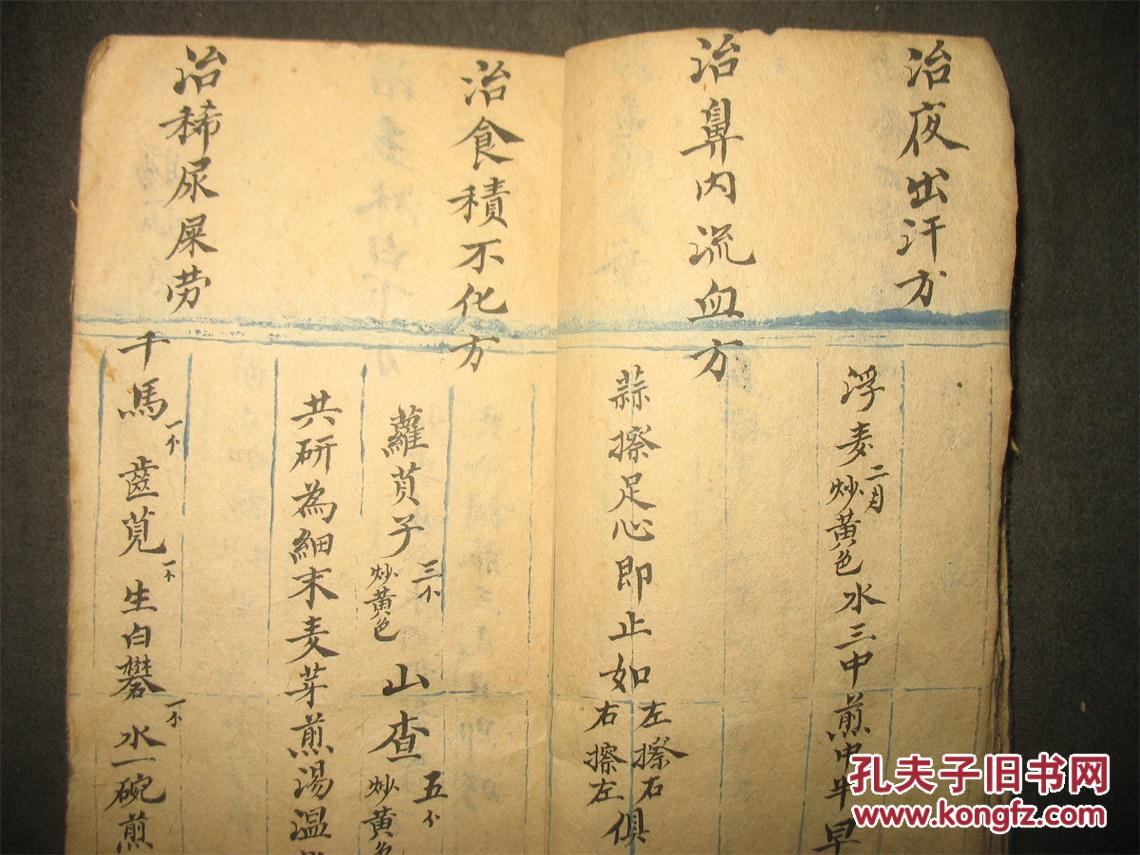 治夜出汗方
浮麦二月炒黄色水三中煎中半早
治鼻内流血方
蒜擦足心即止如左擦右右擦左俱
治食積不化方
蘿苜子三个炒黄色山查五个炒黄色
共研為細末麦芽煎湯温
治稀尿屎劳
干馬一个齒莧一个生白礬一个水一碗煎
孔夫子旧书网
www.kongfz.com